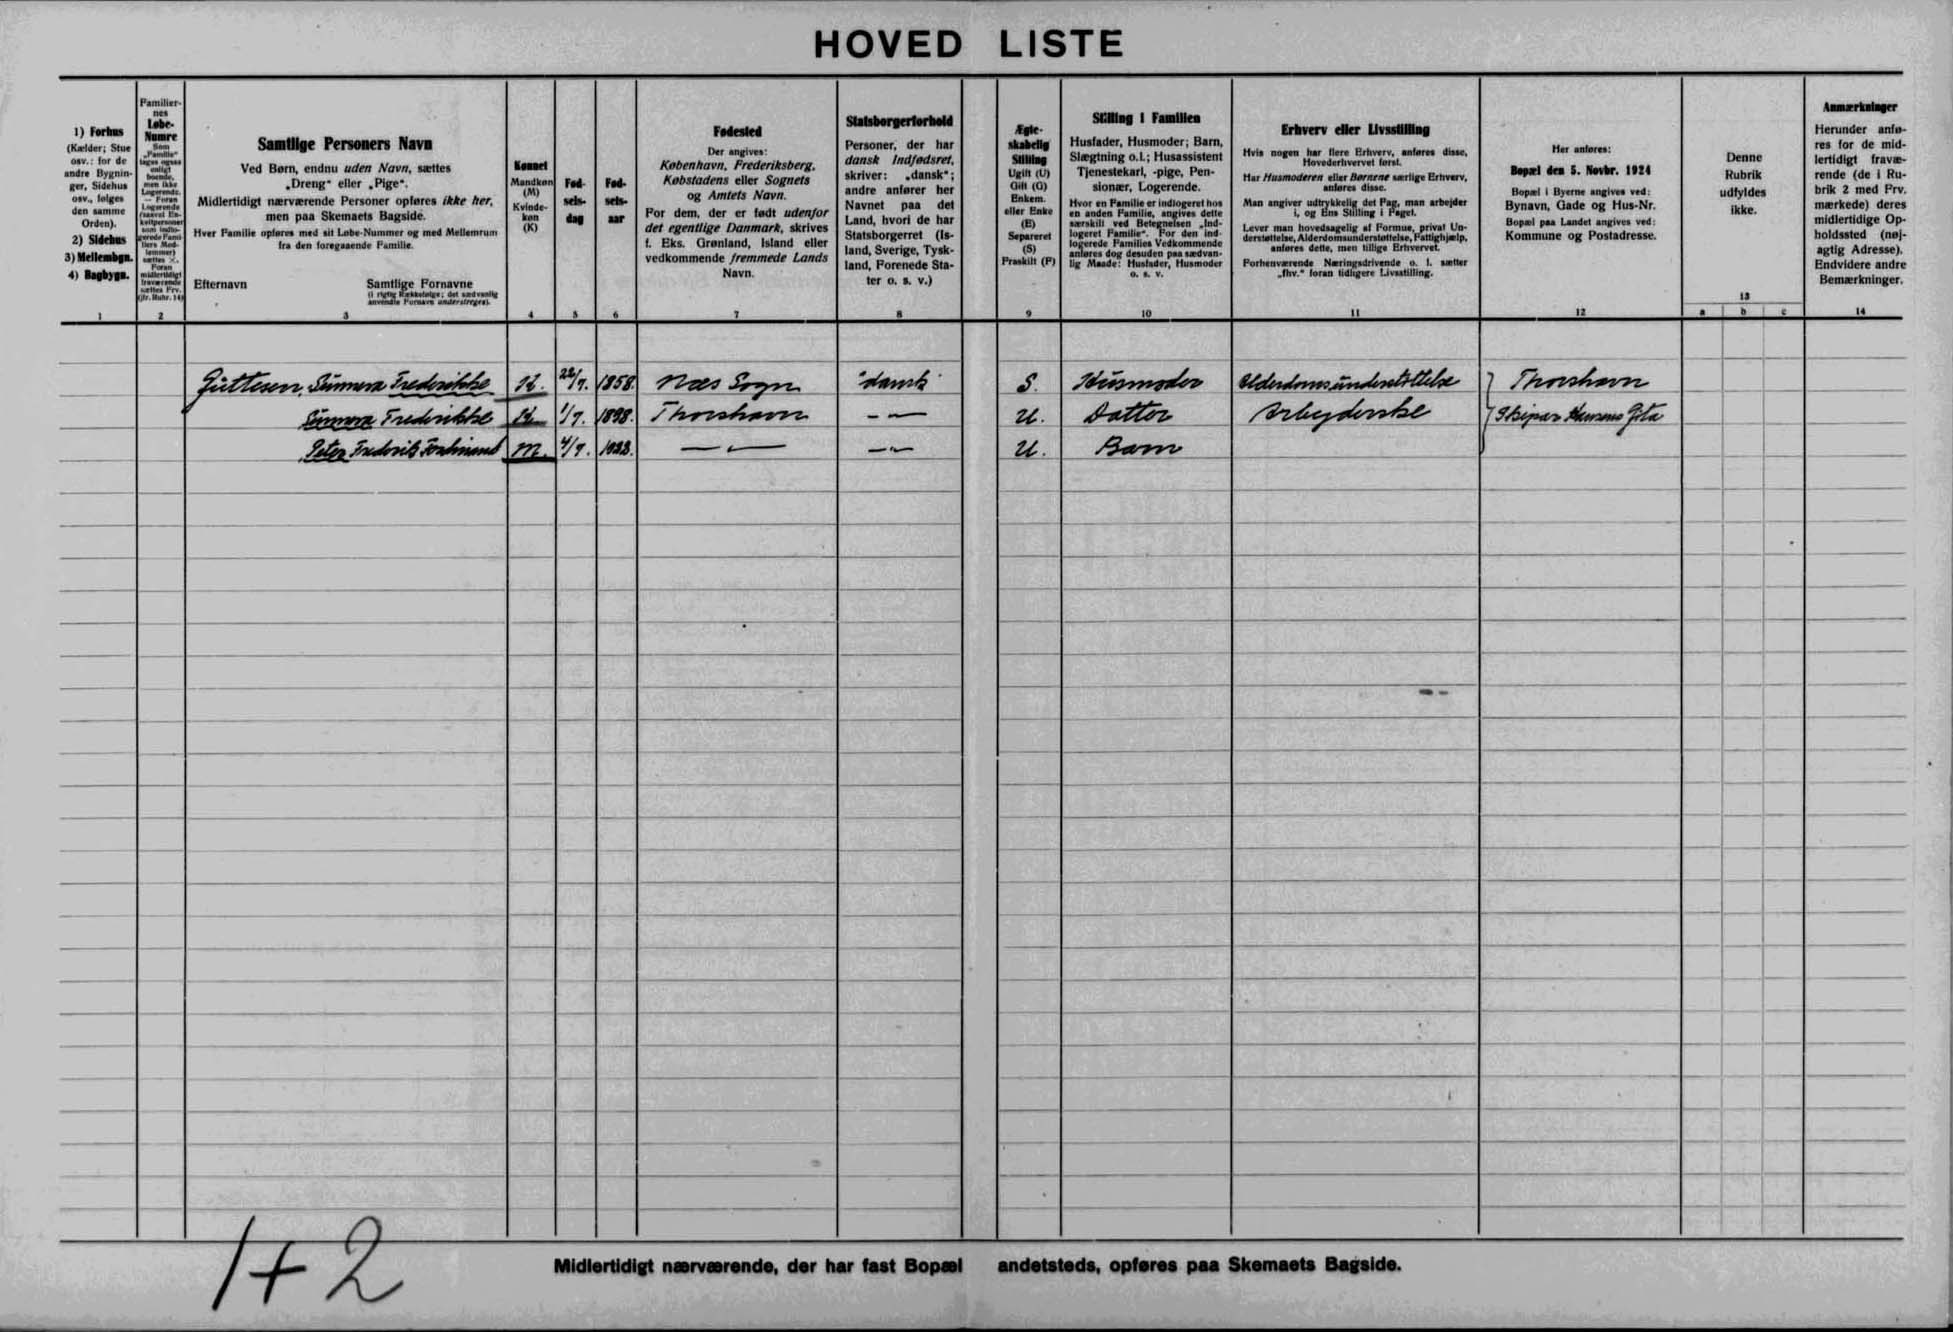 HOVED LISTE
1) Forhus
(Kælder; Stue
osv.: for de
andre Bygnin-
ger, Sidehus
osv., følges
den samme
Orden).
2) Sidehus
3) Mellembgn.
4) Bagbygn.
Familier-
nes
Løbe-
Numre
Som
„Familie“
tages ogsaa
enligt
boende,
men ikke
Logerende.
— Foran
Logerende
(saavel En-
keltpersoner
som indlo-
gerede Fami-
liers Med-
lemmer)
sættes ⁒.
Foran
midlertidigt
fraværende
sættes Frv.
(jfr. Rubr. 14)
Samtlige Personers Navn
Ved Børn, endnu uden Navn, sættes
„Dreng“ eller „Pige“.
Midlertidigt nærværende Personer opføres ikke her,
men paa Skemaets Bagside.
Hver Familie opføres med sit Løbe-Nummer og med Mellemrum
fra den foregaaende Familie.
Efternavn Samtlige Fornavne
(i rigtig Rækkefølge; det sædvanlig
anvendte Fornavn understreges).
Kønnet
Mandkøn
(M)
Kvinde-
køn
(K)
Fød-
sels-
dag
Fød-
sels-
aar
Fødested
Der angives:
København, Frederiksberg,
Købstadens eller Sognets
og Amtets Navn.
For dem, der er født udenfor
det egentlige Danmark, skrives
f. Eks. Grønland, Island eller
vedkommende fremmede Lands
Navn.
Statsborgerforhold
Personer, der har
dansk Indfødsret,
skriver: „dansk“;
andre anfører her
Navnet paa det
Land, hvori de har
Statsborgerret (Is-
land, Sverige, Tysk-
land, Forenede Sta-
ter o. s. v.)
Ægte-
skabelig
Stilling
Ugift (U)
Gift (G)
Enkem.
eller Enke
(E)
Separeret
(S)
Fraskilt (F)
Stilling i Familien
Husfader, Husmoder; Barn,
Slægtning o.l.; Husassistent
Tjenestekarl, -pige, Pen-
sionær, Logerende.
Hvor en Familie er indlogeret hos
en anden Familie, angives dette
særskilt ved Betegnelsen „Ind-
logeret Familie“. For den ind-
logerede Families Vedkommende
anføres dog desuden paa sædvan-
lig Maade: Husfader, Husmoder
o. s. v.
Erhverv eller Livsstilling
Hvis nogen har flere Erhverv, anføres disse,
Hovederhvervet først.
Har Husmoderen eller Børnene særlige Erhverv,
anføres disse.
Man angiver udtrykkelig det Fag, man arbejder
i, og Ens Stilling i Faget.
Lever man hovedsagelig af Formue, privat Un-
derstøttelse, Alderdomsunderstøttelse, Fattighjælp,
anføres dette, men tillige Erhvervet.
Forhenværende Næringsdrivende o. l. sætter
„fhv.“ foran tidligere Livsstilling.
Her anføres:
Bopæl den 5. Novbr. 1924
Bopæl i Byerne angives ved:
Bynavn, Gade og Hus-Nr.
Bopæl paa Landet angives ved:
Kommune og Postadresse.
Denne
Rubrik
udfyldes
ikke.
13
Anmærkninger
Herunder anfø-
res for de mid-
lertidigt fravæ-
rende (de i Ru-
brik 2 med Frv.
mærkede) deres
midlertidige Op-
holdssted (nøj-
agtig Adresse).
Endvidere andre
Bemærkninger.
1 2 3 4 5 6 7 8 9 10 11 12 a b c 14
Guttesen, Sunneva Frederikke K. 22/7. 1858. Næs Sogn "dansk" S. Husmoder Alderdomsunderstøttelse } Thorshavn
Sunneva Frederikke K 1/7. 1898. Thorshavn —"— U. Datter Arbejderske Skipar Hansens Gøta
Peter Frederik Ferdinand M. 4/9. 1922. —"— —"— U. Barn
1+2
Midlertidigt nærværende, der har fast Bopæl andetsteds, opføres paa Skemaets Bagside.